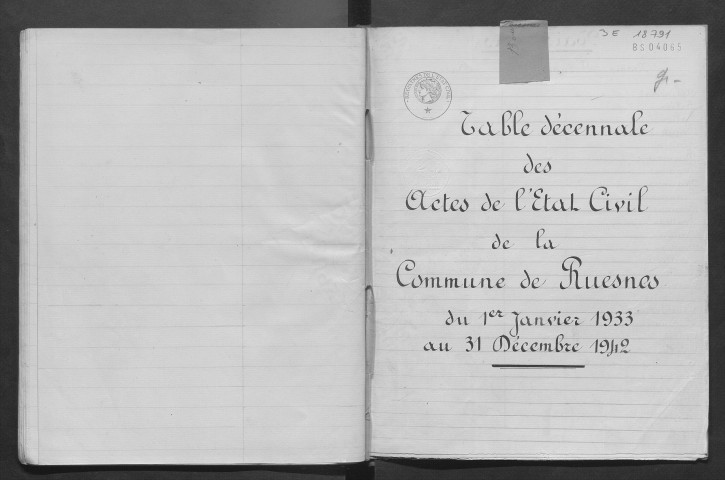 3E 18791
BS04065
Table décennale
des
Actes de l'Etat Civil
de la
Commune de Ruesnes
du 1er Janvier 1933
au 31 Décembre 1942